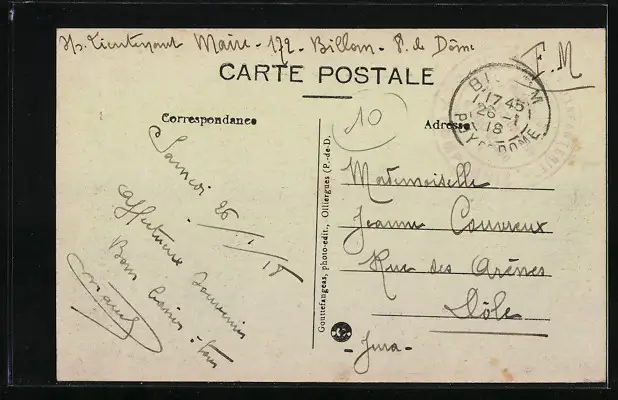 Lieutenant Maire - 172 - Billom - P. de Dôme
F.M
CARTE POSTALE
Correspondance
Adresse
10
BILLOM
17 45
26 - 1
18
PUY-DE-DOME
Samedi 26
1
18
affectueux souvenir
Bons baisers à tous
Gouttefangeas, photo-edit., Olliergues (P.-de-D.
Mademoiselle
Jeanne Couvreux
Rue des Arènes
Dôle
- Jura -